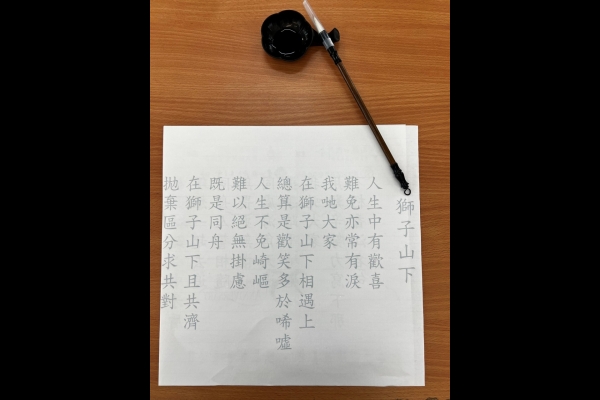 獅子山下
人生中有歡喜
難免亦常有淚
我哋大家
在獅子山下相遇上
總算是歡笑多於唏噓
人生不免崎嶇
難以絕無掛慮
既是同舟
在獅子山下且共濟
拋棄區分求共對